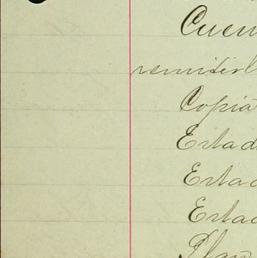 Cuen
remitid
Copia
Estad
Estad
Estad
Plan